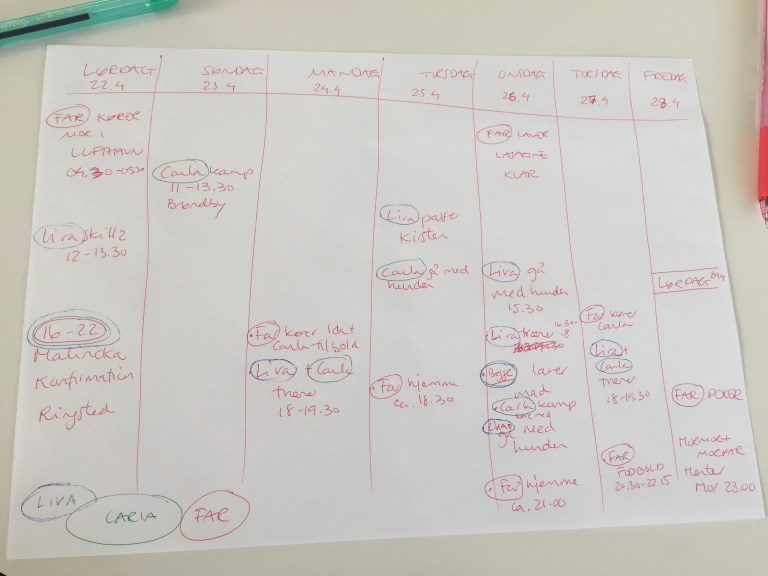 LØRDAG
22.4
FAR KØRER
MOR I
LUFTHAVN
04.30-0530
Liva skills
12-13.30
16-22
Malincka
Konfirmation
Ringsted
SØNDAG
23.4
Carla kamp
11-13.30
Brøndby
MANDAG
24.4
Far kører Ida+
Carla til bold
Liva + Carla
træner
18-19.30
TIRSDAG
25.4
Liva passer
Kirsten
Carla gå med
hunden
Far hjemme
ca. 18.30
ONSDAG
26.4
FAR LAVER
LASAGNE
KLAR
Liva gå
med hunden
15.30
Liva træner
16.30-18
Begge laver
mad
Carla kamp
gå med
hunden
Far hjemme
ca. 21.00
TORSDAG
27.4
Far kører
Carla
Liva +
Carla
træner
18-19.30
FAR
FODBOLD
20.30-22.15
FREDAG
28.4
LØRDAG 29.4
FAR POKER
MORMOR+
MORFAR
Henter
Mor 23.00
LIVA
CARLA
FAR